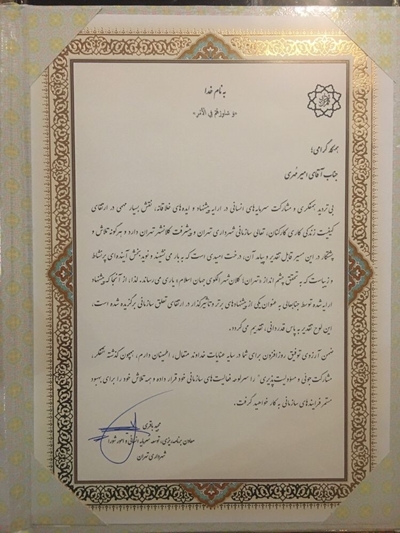 به نام خدا
«وَ شاوِرْهُمْ فِی الْأَمْرِ»
همکار گرامی؛
جناب آقای امیر مهری
بی تردید همفکری و مشارکت سرمایه‌های انسانی در ارایه پیشنهاد و ایده‌های خلاقانه، نقش بسیار مهمی در ارتقای
کیفیت زندگی کاری کارکنان، تعالی سازمانی شهرداری تهران و پیشرفت کلانشهر تهران دارد و هرگونه تلاش و
پشتکار در این مسیر قابل تقدیر و پیامد آن، درخت امیدی است که به بار می نشیند و نوید بخش آینده‌ای پرنشاط
و زیباست که به تحقق چشم انداز «تهران؛ کلان شهر الگوی جهان اسلام» یاری می رساند. لذا، از آنجا که پیشنهاد
ارایه شده توسط جنابعالی به عنوان یکی از پیشنهادهای برتر و تاثیرگذار در ارتقای تعالی سازمانی برگزیده شده است،
این لوح تقدیر به پاس قدردانی، تقدیم می گردد.
ضمن آرزوی توفیق روزافزون برای شما در سایه عنایات خداوند متعال، اطمینان دارم، همچون گذشته "تفکر،
مشارکت جویی و مسئولیت پذیری" را سرلوحه فعالیت های سازمانی خود قرار داده و همه تلاش خود را برای بهبود
مستمر فرایندهای سازمانی به کار خواهید گرفت.
باقری
معاون برنامه ریزی، توسعه سرمایه انسانی و امور شورا
شهرداری تهران